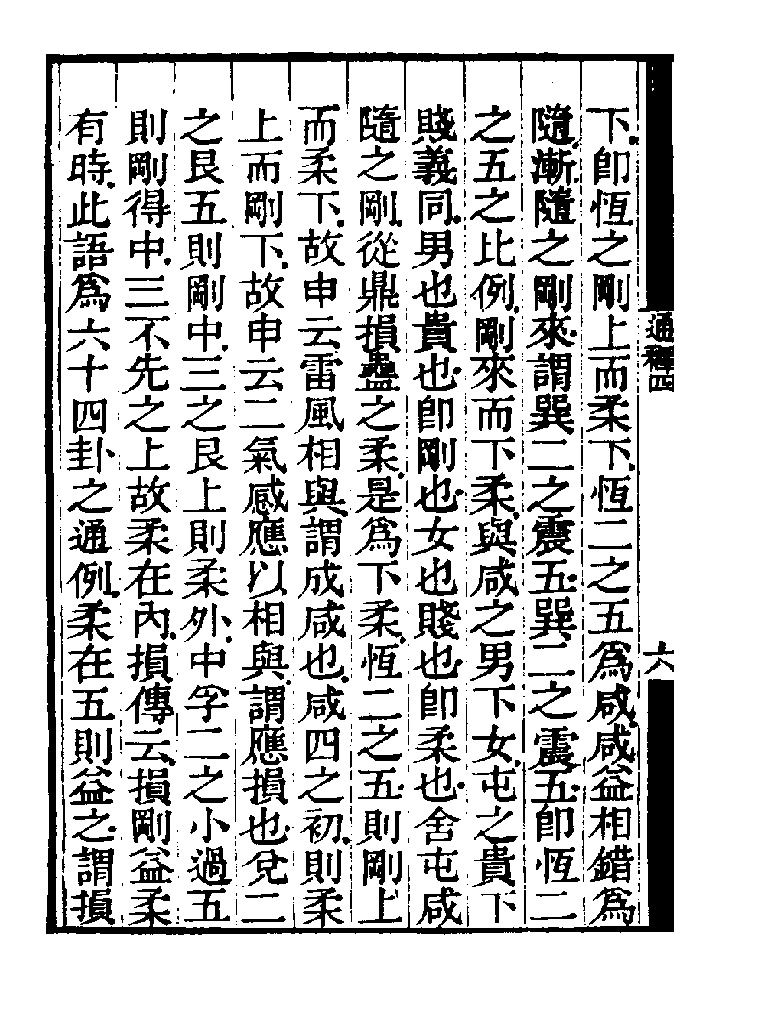 下即恆之剛上而柔下恆二之五爲咸咸益相錯爲
隨漸隨之剛來謂巽二之震五巽二之震五即恆二
之五之比例剛來而下柔與咸之男下女屯之貴下
賤義同男也貴也即剛也女也賤也即柔也舍屯咸
隨之剛從鼎損蠱之柔是爲下柔恆二之五則剛上
而柔下故申云雷風相與謂成咸也咸四之初則柔
上而剛下故申云二氣感應以相與謂應損也兌二
之艮五則剛中三之艮上則柔外中孚二之小過五
則剛得中三不先之上故柔在內損傳云損剛益柔
有時此語爲六十四卦之通例柔在五則益之謂損
通釋四
六